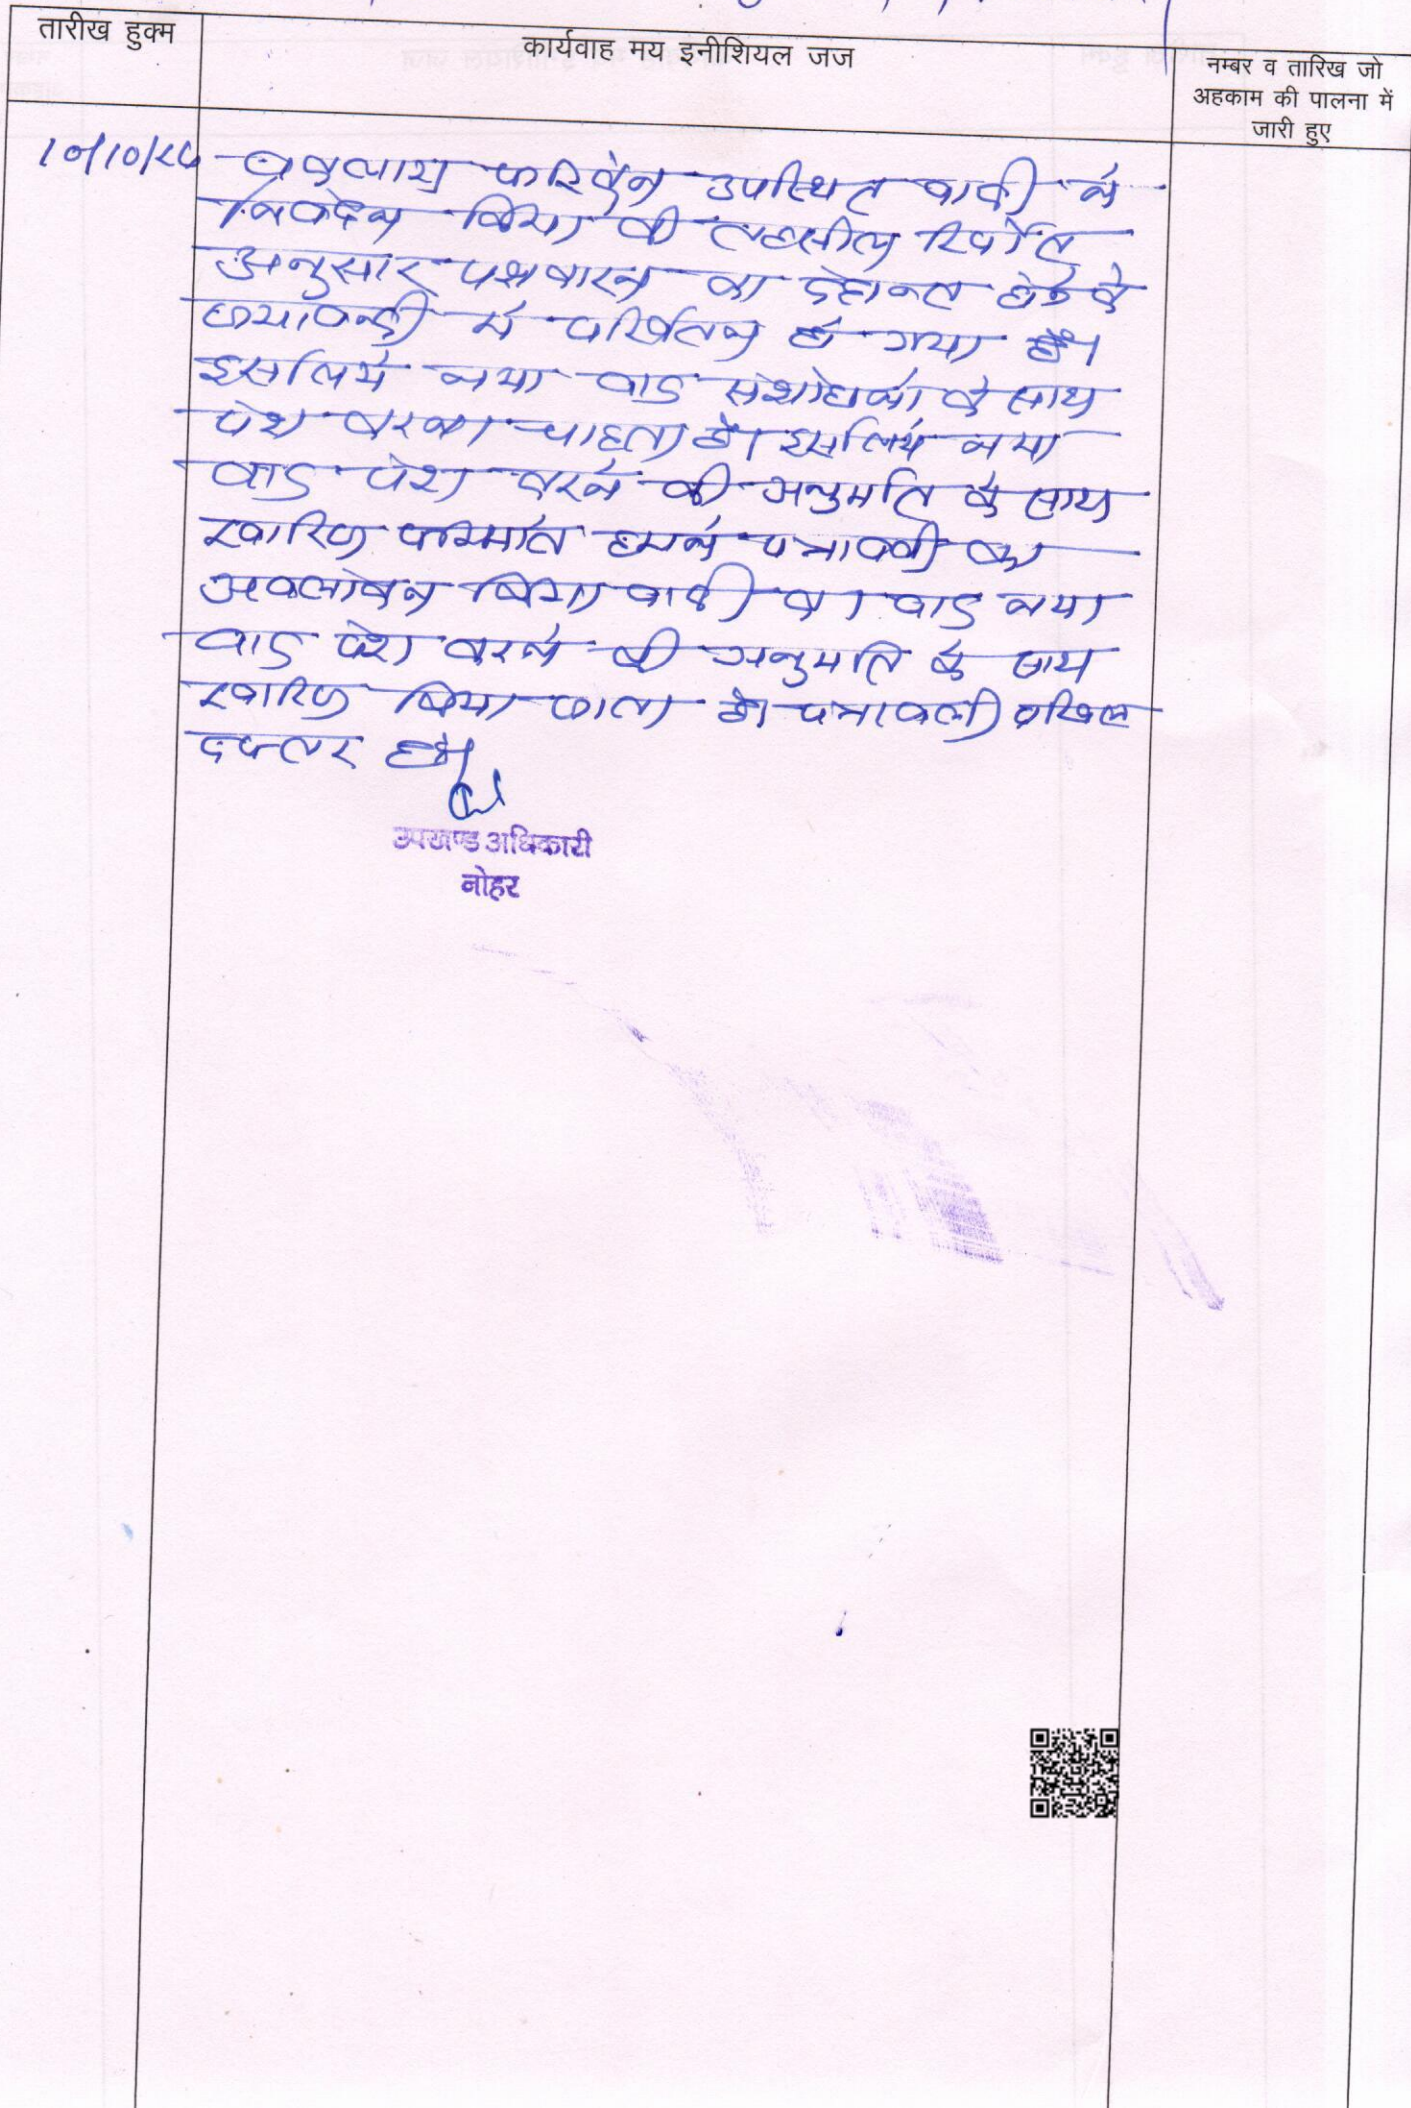 तारीख हुक्म
कार्यवाह मय इनीशियल जज
नम्बर व तारिख जो
अहकाम की पालना में
जारी हुए
10/10/24
वकुलाय फरिकेन उपस्थित वादी ने
निवेदन किया की तहसील रिपोर्ट
अनुसार पक्षकारन का देहान्त होने से
जमाबन्दी मे परिर्वतन हो गया है।
इसलिये नया वाद संशोधनो के साथ
पेश करना चाहता है। इसलिये नया
वाद पेश करने की अनुमति के साथ
खारिज फरमावे हमने पत्रावली का
अवलोकन किया वादी का वाद नया
वाद पेश करने की अनुमति के साथ
खारिज किया जाता है। पत्रावली दाखिल
दफ्तर हो।
उपखण्ड अधिकारी
नोहर